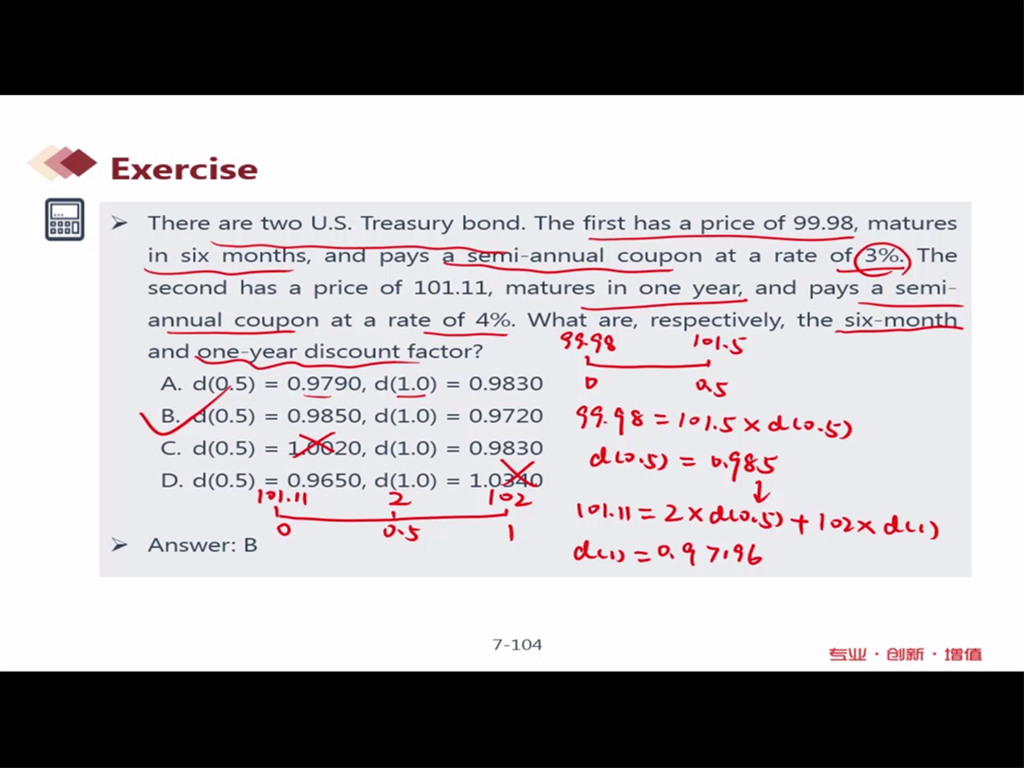 Exercise
➢ There are two U.S. Treasury bond. The first has a price of 99.98, matures
in six months, and pays a semi-annual coupon at a rate of 3%. The
second has a price of 101.11, matures in one year, and pays a semi-
annual coupon at a rate of 4%. What are, respectively, the six-month
and one-year discount factor?
99.98 101.5
0 0.5
A. d(0.5) = 0.9790, d(1.0) = 0.9830
B. d(0.5) = 0.9850, d(1.0) = 0.9720
99.98 = 101.5 × d(0.5)
C. d(0.5) = 1.0020, d(1.0) = 0.9830
d(0.5) = 0.985
D. d(0.5) = 0.9650, d(1.0) = 1.0340
101.11 2 102
0 0.5 1
101.11 = 2 × d(0.5) + 102 × d(1)
➢ Answer: B
d(1) = 0.97196
7-104
专业·创新·增值